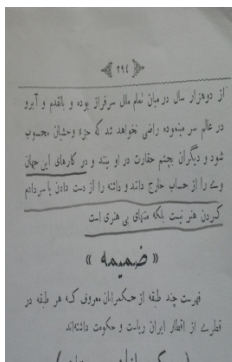 ﴿ ٢٩٤ ﴾
از دوهزار سال درمیان تمام ملل سرفراز بوده و باقدم و آبرو
در عالم سر مینموده راضی نخواهد شد که جزء وحشیان محسوب
شود و دیگران بچشم حقارت در او بینند و در کارهای این جهان
ویرا از حساب خارج دانند و داشته را از دست دادن یا سردادم
کردن هنر نیست بلکه منتهای بی هنری است
« ضمیمه »
فهرست چند طبقه از حکمرانان معروف که هر طبقه در
قطری از اقطار ایران ریاست و حکومت داشته‌اند